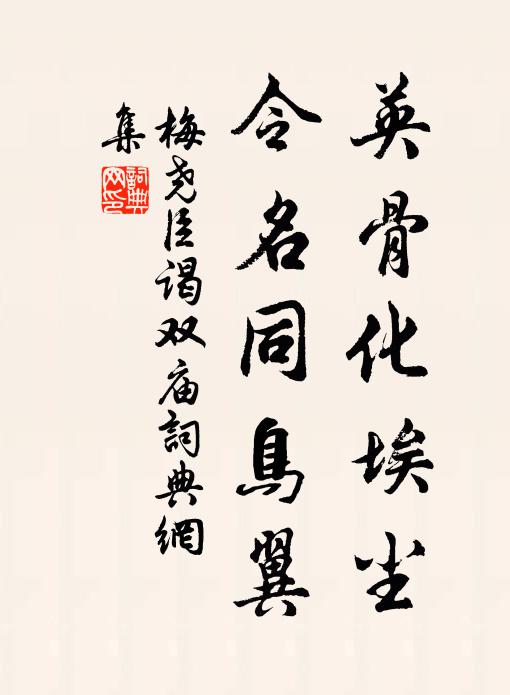 英骨化埃尘
令名同鸟翼
梅尧臣谒双庙詞典網
集
詞典網印